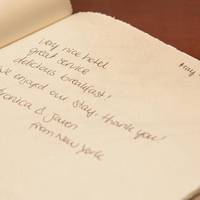 very nice hotel
great service
delicious breakfast!
We enjoyed our stay, thank you!
Veronica &
from New York